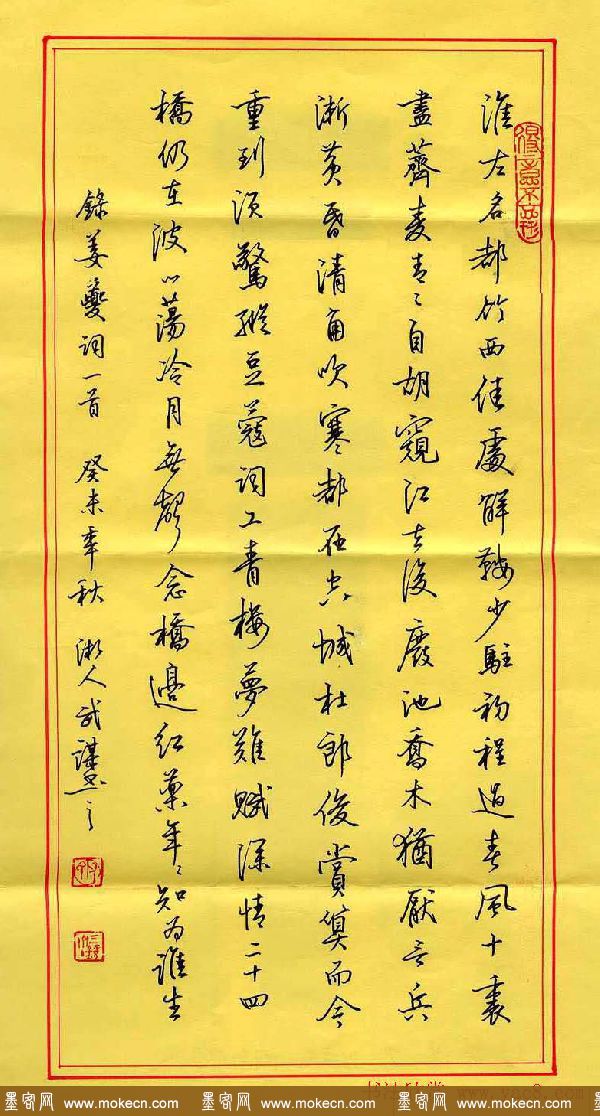 淮左名都竹西佳處解鞍少駐初程過春風十裏
盡薺麥青〻自胡窺江去後廢池喬木猶厭言兵
漸黄昏清角吹寒都在空城杜郎俊賞算而今
重到須驚縱豆蔻詞工青樓夢難賦深情二十四
橋仍在波心蕩冷月無聲念橋邊紅藥年〻知為誰生
錄姜夔詞一首 癸未年秋 湘人武
墨客网 www.mokecn.com 墨客网 www.mokecn.com 墨客网 www.mokecn.com